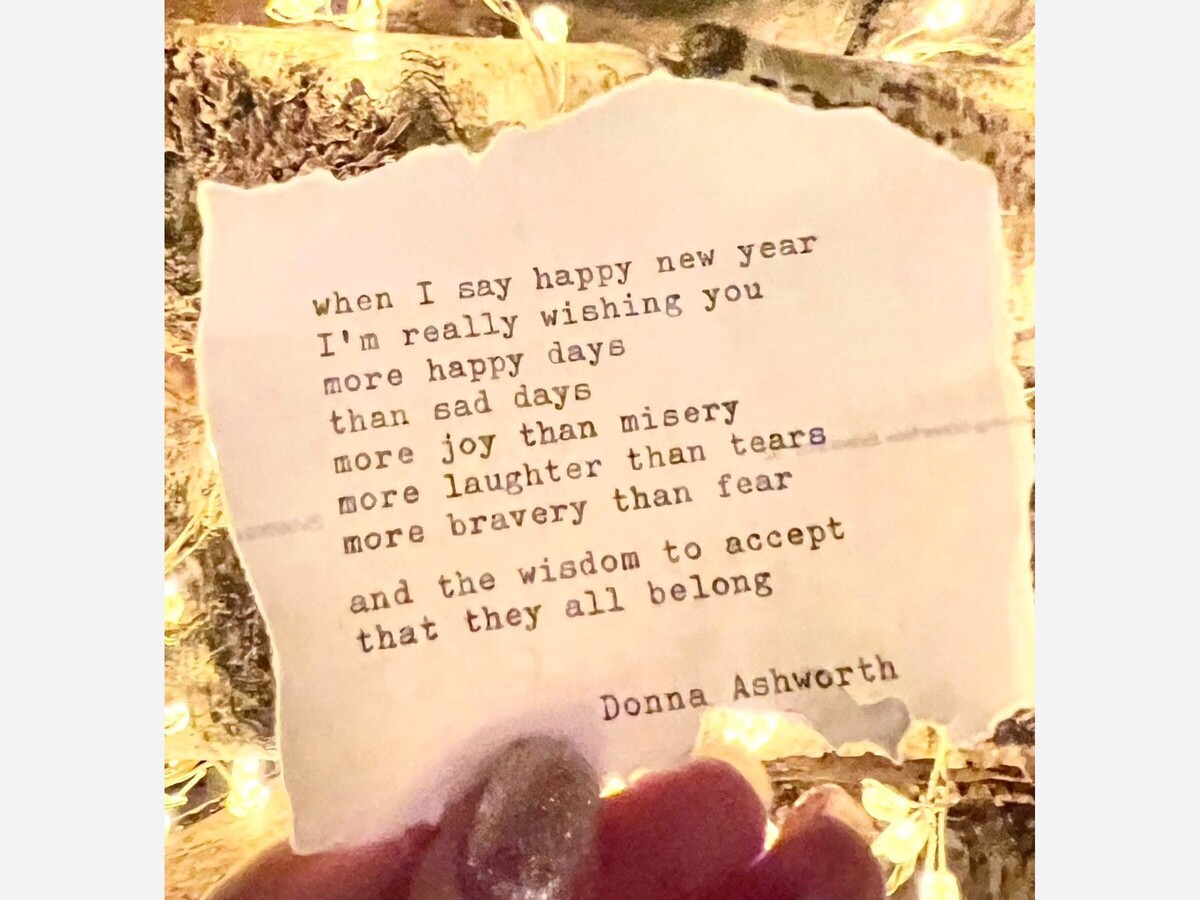 when I say happy new year
I'm really wishing you
more happy days
than sad days
more joy than misery
more laughter than tears
more bravery than fear
and the wisdom to accept
that they all belong
Donna Ashworth